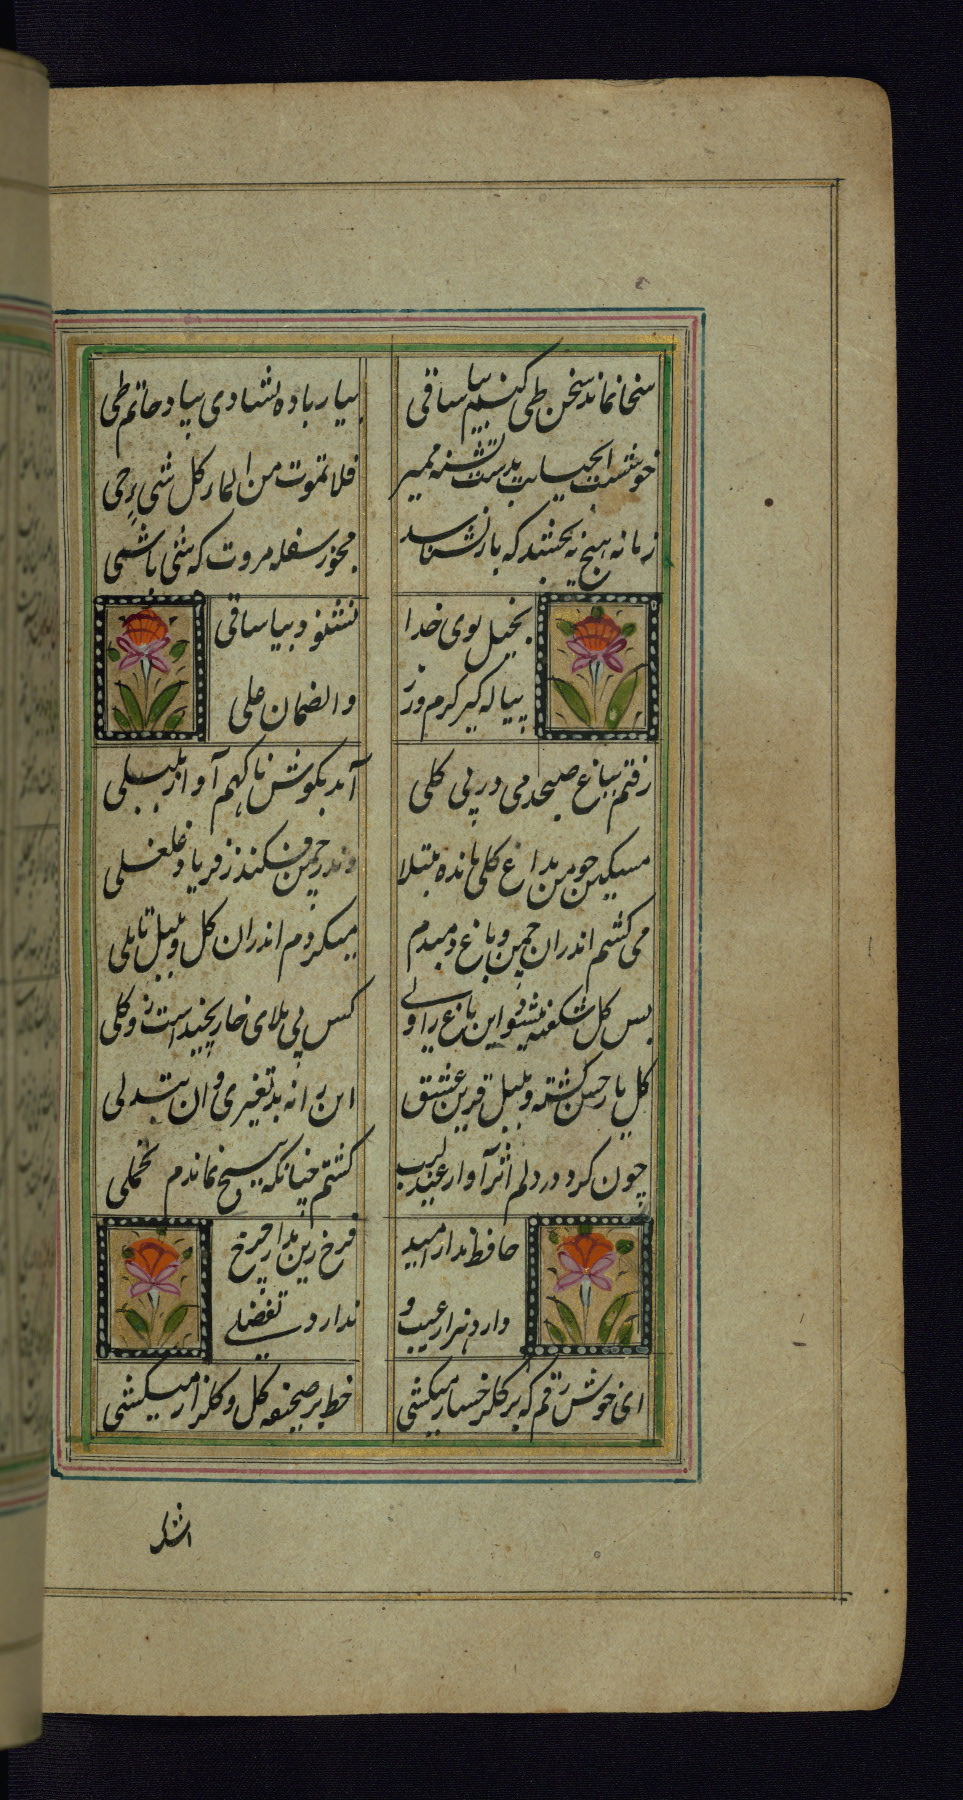 سخا نماند سخن طی کنم بیا ساقی
بیار باده بشادی بیاد حاتم طی
خوشست آبحیات بدست تشنه ممیر
فلا تموت من الماء کل شئ حی
زمانه هیچ نه بخشد که باز نستاند
مجوز سفله مروت که شئی لاشی
بخیل بوی خدا
نشنود بیا ساقی
پیاله گیر کرم ورز
والضمان علی
رفتم بباغ صبحدمی در پی گلی
آمد بگوش ناگهم آواز بلبلی
مسکین چو من بداغ گلی مانده مبتلا
وندر چمن فکنده ز فریاد غلغلی
می کشتم اندران چمن و باغ دمبدم
میکردم اندران گل و بلبل تاملی
بس گل شکفته میشود این باغ را ولی
کس بی بلای خار نچیداست زو گلی
گل یار حسن گشته و بلبل قرین عشق
این را نه بد تغیری و آن تبدلی
چون کرد در دلم اثر آواز عندلیب
گشتم چنانکه هیچ نماندم تحملی
حافظ مدار امید
فرخ زین مدار چرخ
دارد هزار عیب و
ندارد تفضلی
ای خوش رقم که بر گل رخسار میکشی
خط بر صحیفه گل و گلزار میکشی
اشک